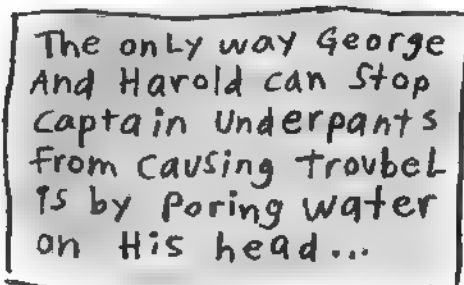 The only way George
And Harold can Stop
Captain Underpants
From causing troubel
is by Poring water
on His head...